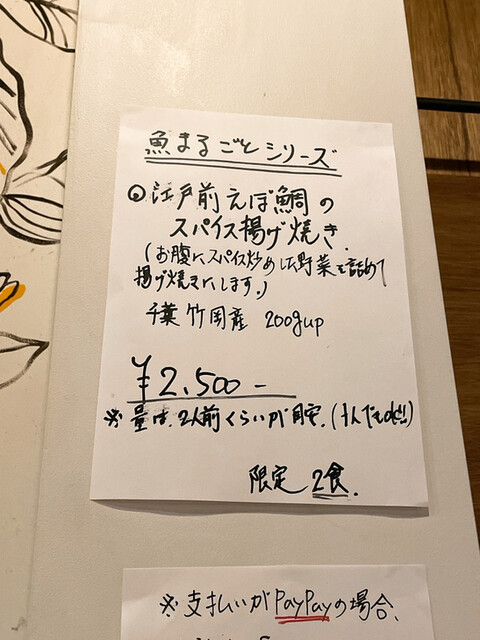 魚まるごとシリーズ
◎江戸前えぼ鯛の
スパイス揚げ焼き
(お腹にスパイス炒めした野菜を詰めて
揚げ焼きにします。)
千葉 竹岡産 200gup
¥2,500-
※量は、2人前くらいが目安。
限定 2食.
※支払いがPayPayの場合、